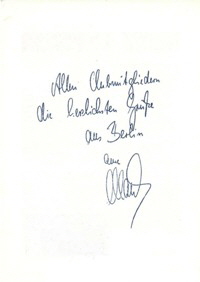 Allen Clubmitgliedern
die herzlichsten Grüße
aus Berlin